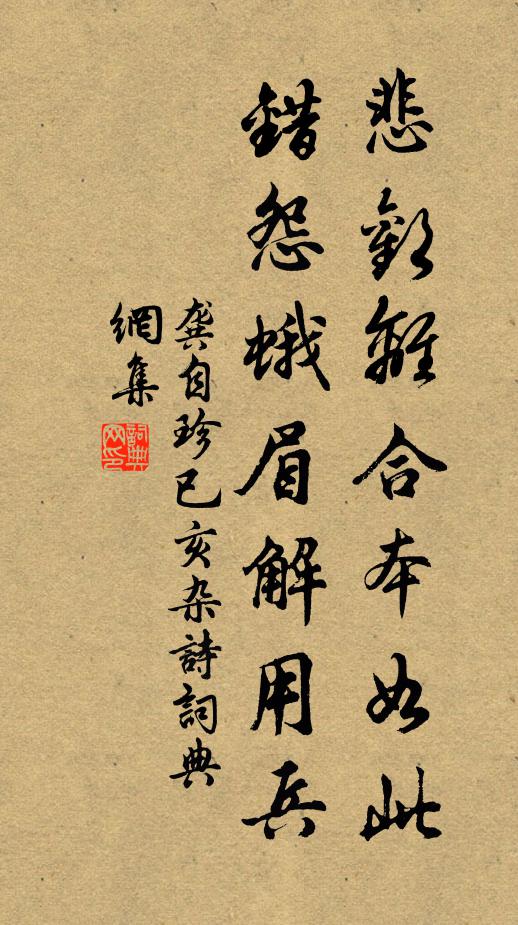 悲歡離合本如此
錯怨蛾眉解用兵
龔自珍己亥杂詩詞典
網集
詞典
网印